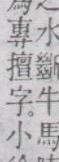 之水斷牛馬
為專擅字。小